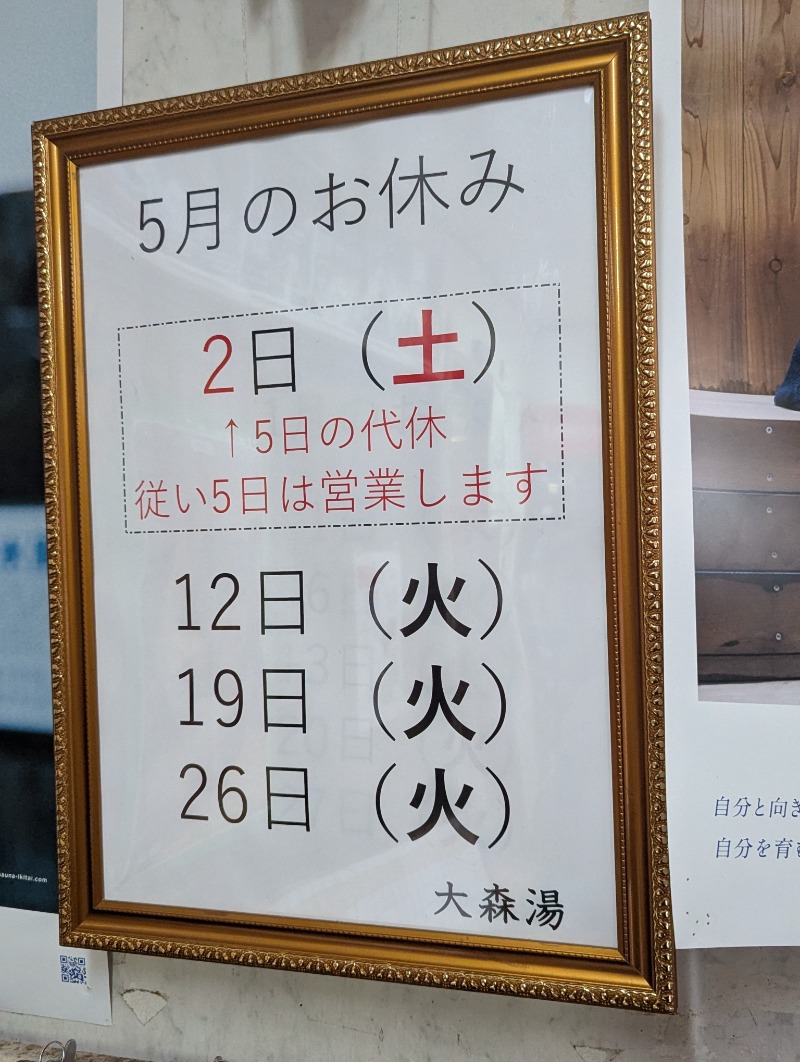 5月のお休み
2日（土）
↑5日の代休
従い5日は営業します
12日（火）
19日（火）
26日（火）
大森湯
自分と向き
自分を育
sauna-ikitai.com